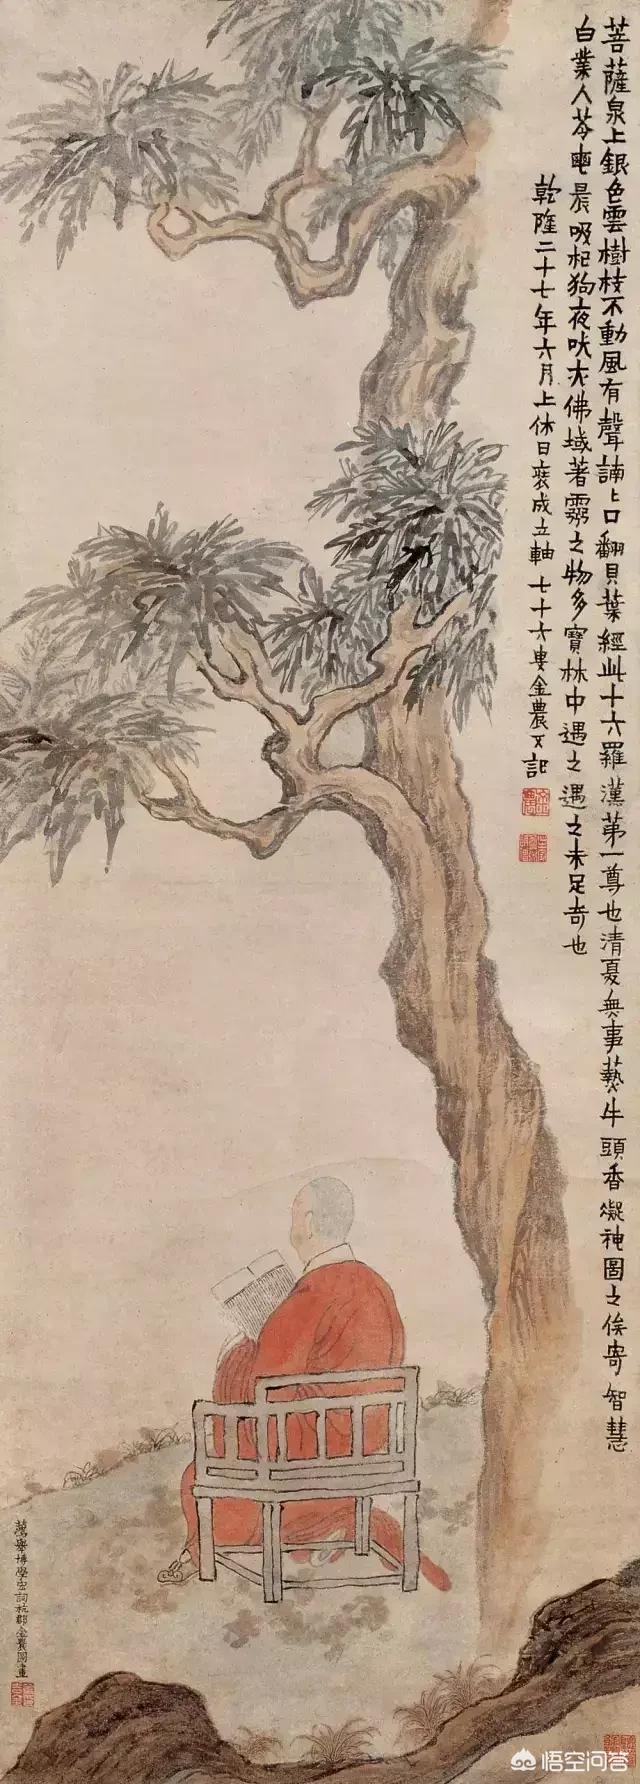 菩薩泉上銀色雲樹枝不動風有聲諵〻口翻貝葉經此十六羅漢苐一尊也清夏無事爇牛頭香凝神圖之俟寄智慧
白業人苓 晨吸杞狗夜吠 佛域著靈之物多寶林中遇之遇之未足奇也
乾隆二十七年六月上休日裝成立軸七十六 金農又記
薦舉博學宏詞杭郡金農圖畫
悟空问答